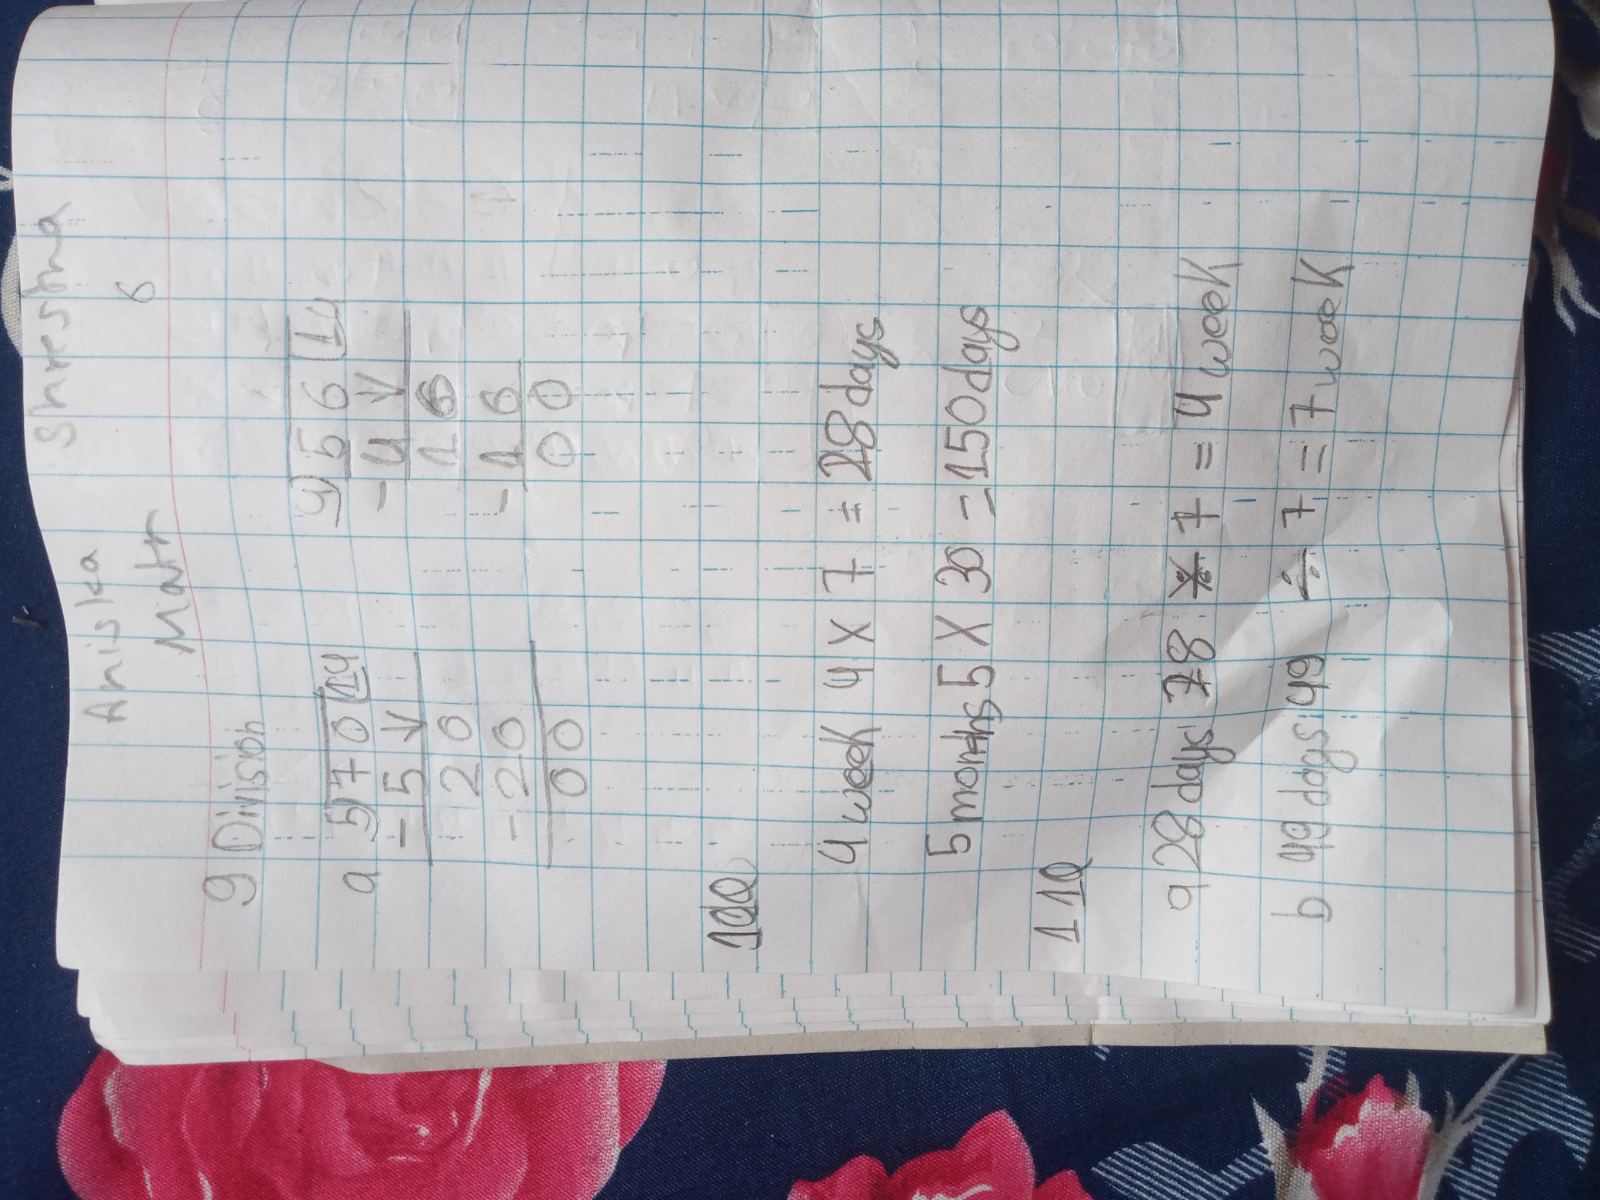 Aniska Shrestha
Matr 6
9 Division
a 5)70(14 4)56(14
-5↓ -4↓
20 16
-20 -16
00 00
10Q
4 week 4 X 7 = 28 days
5 months 5 X 30 = 150 days
11Q
a 28 days 28 ÷ 7 = 4 week
b 49 days 49 ÷ 7 = 7 week